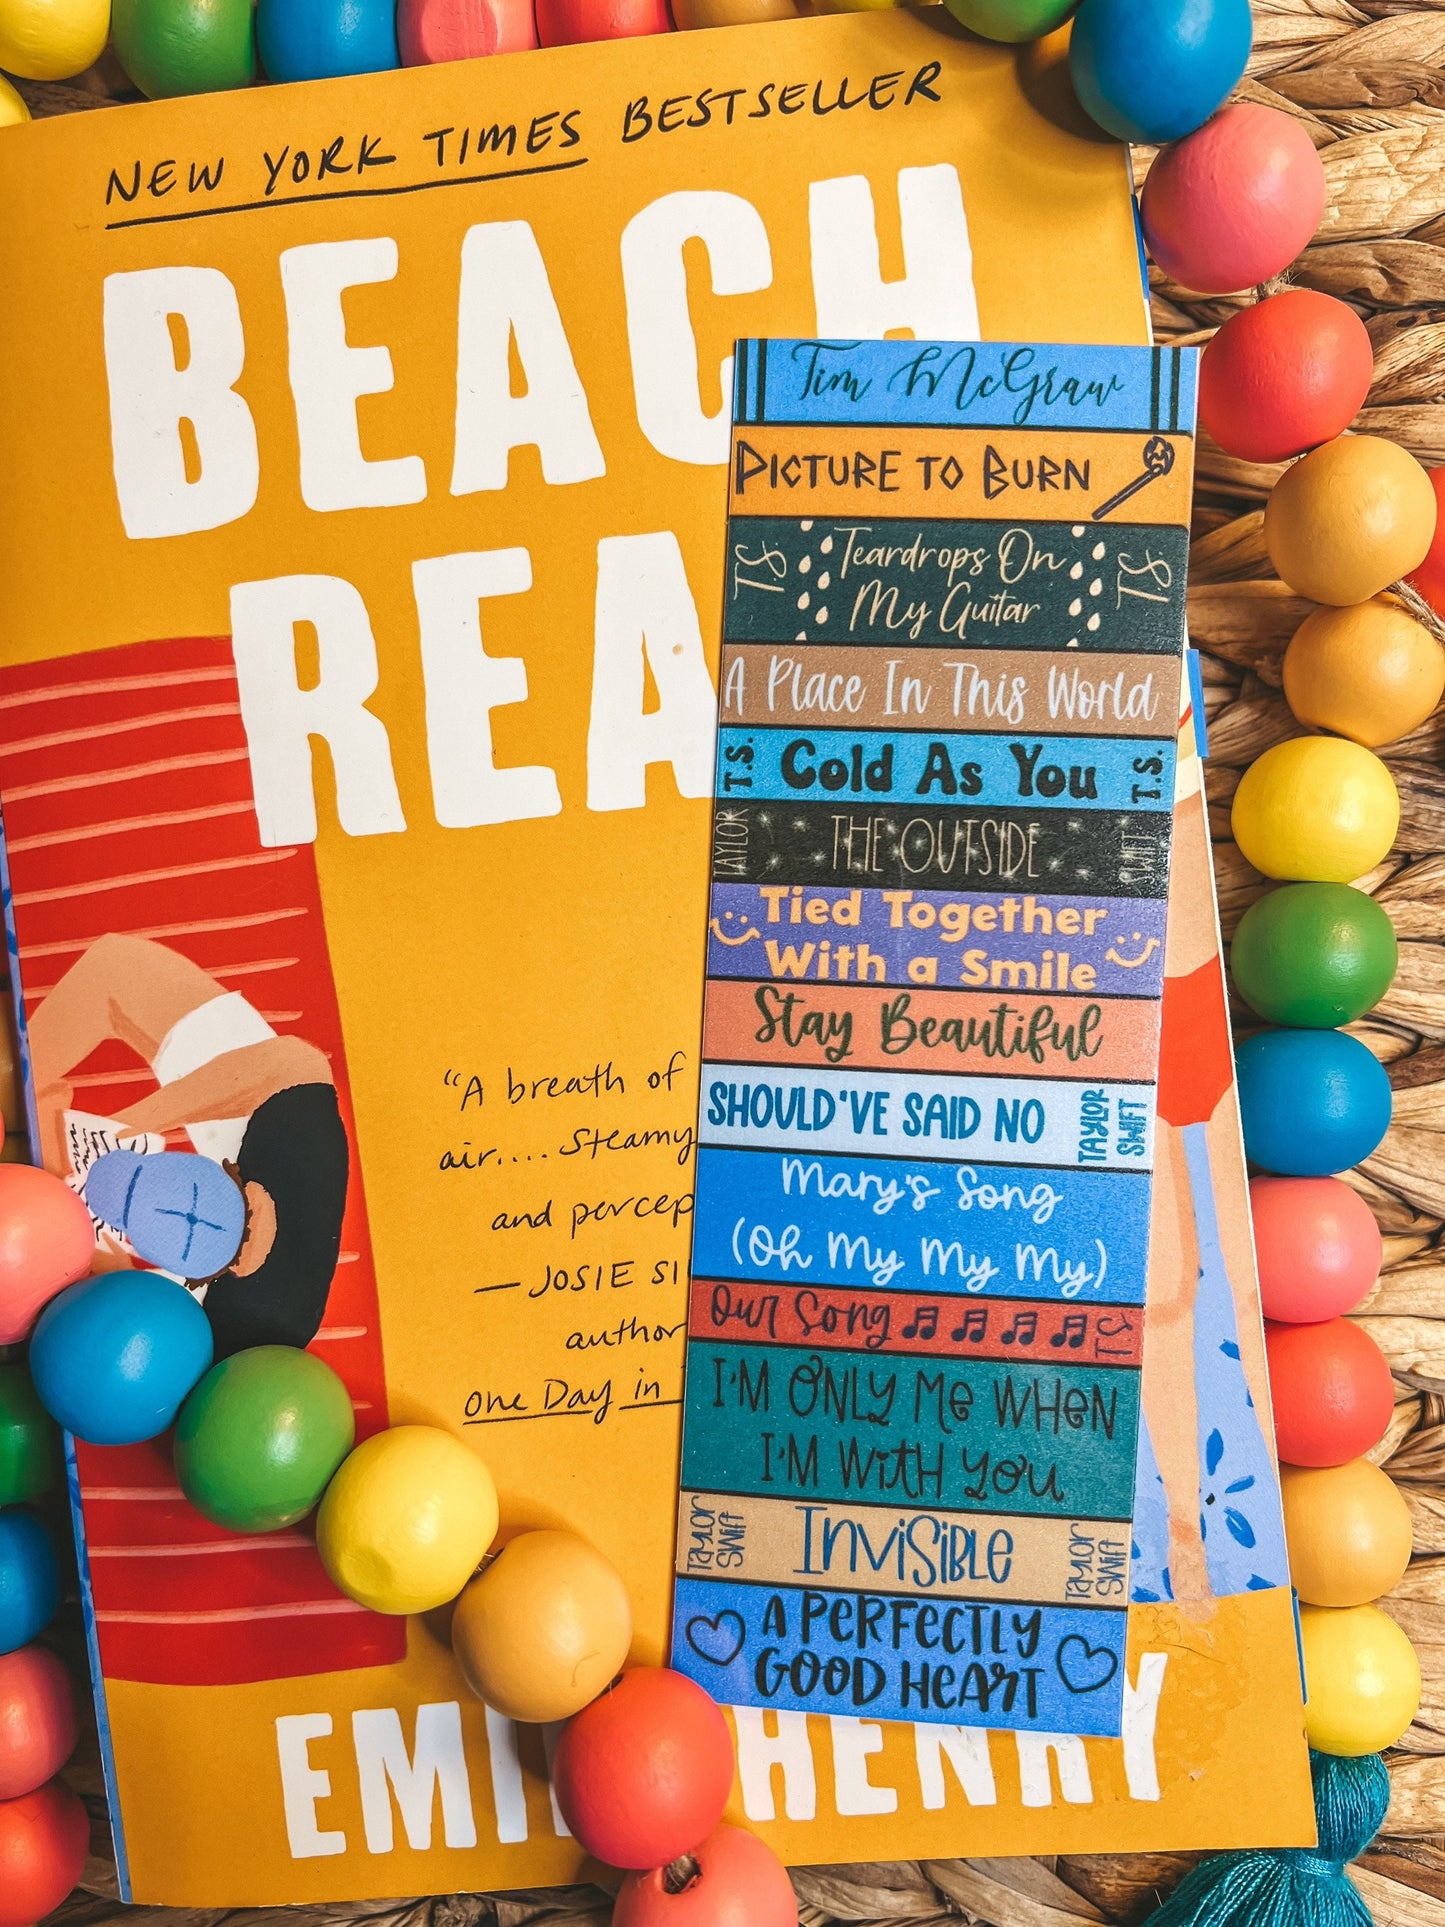 NEW YORK TIMES BESTSELLER
BEACH
REA
"A breath of
air.... Steamy
and percep
— JOSIE SI
author
One Day in
EMI HENRY
Tim McGraw
PICTURE TO BURN
T.S. Teardrops On T.S.
My Guitar
A Place In This World
T.S. Cold As You T.S.
TAYLOR THE OUTSIDE SWIFT
Tied Together
With a Smile
Stay Beautiful
SHOULD'VE SAID NO TAYLOR SWIFT
Mary's Song
(Oh My My My)
Our Song T.S.
I'M ONLY Me WHeN
I'M WiTH YOU
TAYLOR SWIFT INViSiBLe TAYLOR SWIFT
A PeRFeCTLY
GOOD HeART